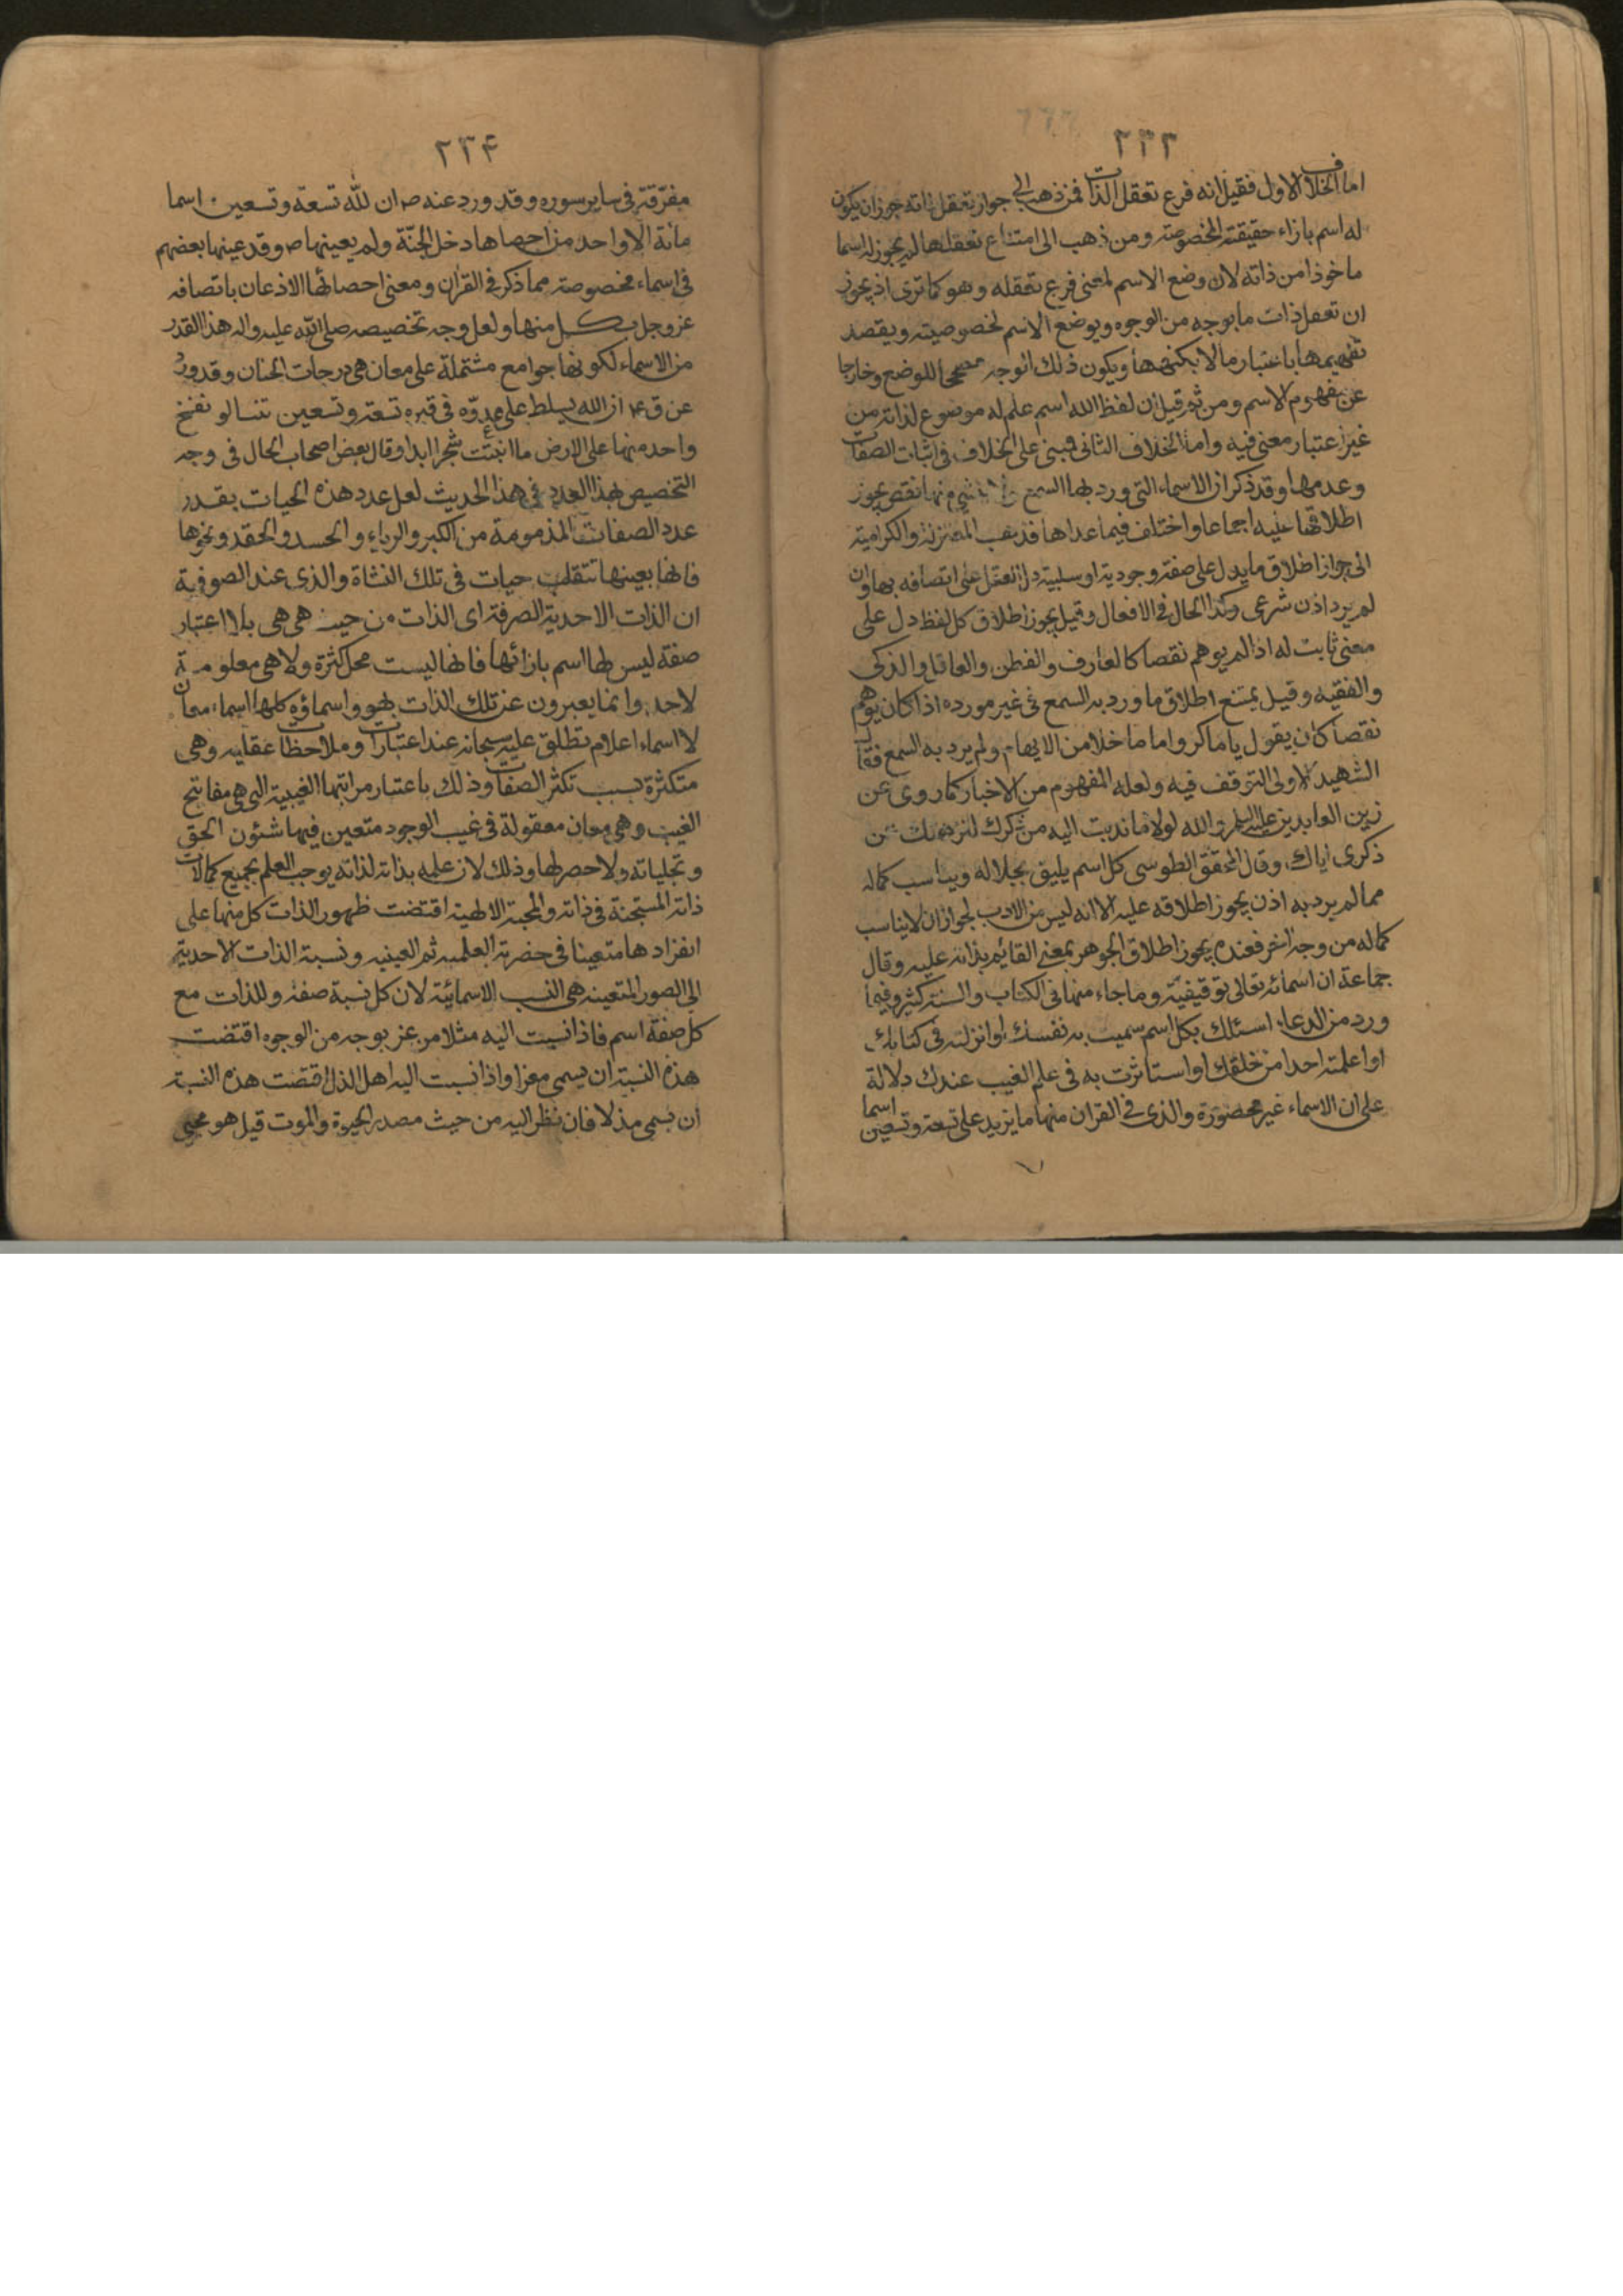 ٢٣٣
اما الخلاف الاول فقيل انه فرع تعقل الذات فمن ذهب الى جواز تعقل ذاته جوز ان يكون
له اسم بازاء حقيقته المخصوصة ومن ذهب الى امتناع تعقلها لم يجوز له اسما
ماخوذا من ذاته لان وضع الاسم لمعنى فرع تعقله وهو كما ترى اذ يجوز
ان تعقل ذات ما بوجه من الوجوه ويوضع الاسم لخصوصيته ويقصد
تفهيمها باعتبار ما لا بكنهها ويكون ذلك الوجه مصححا للوضع وخارجا
عن مفهوم الاسم ومن ثم قيل ان لفظ الله اسم علم له موضوع لذاته من
غير اعتبار معنى فيه واما الخلاف الثانى فمبنى على الخلاف فى اثبات الصفات
وعدمها وقد ذكر ان الاسماء التى ورد بها السمع ولا شىء منها نقص يجوز
اطلاقها عليه اجماعا واختلف فيما عداها فذهب المعتزلة والكرامية
الى جواز اطلاق ما يدل على صفة وجودية او سلبية دل العقل على اتصافه بها وان
لم يرد اذن شرعى وكذا الحال فى الافعال وقيل يجوز اطلاق كل لفظ دل على
معنى ثابت له اذا لم يوهم نقصا كالعارف والفطن والعاقل والذكى
والفقيه وقيل يمتنع اطلاق ما ورد به السمع فى غير مورده اذا كان يوهم
نقصا كان يقول يا ماكر واما ما خلا من الايهام ولم يرد به السمع فقال
الشهيد الاولى التوقف فيه ولعله المفهوم من الاخبار كما روى عن
زين العابدين عليه السلم والله لولا ما ندبت اليه من شكرك لنزهتك عن
ذكرى اياك، وقال المحقق الطوسى كل اسم يليق بجلاله ويناسب كماله
مما لم يرد به اذن يجوز اطلاقه عليه الا انه ليس من الادب لجواز ان لا يناسب
كماله من وجه اخر فعنده يجوز اطلاق الجوهر بمعنى القائم بذاته عليه وقال
جماعة ان اسمائه تعالى توقيفية وما جاء منها فى الكتاب والسنة كثير وفيما
ورد من الدعاء اسئلك بكل اسم سميت به نفسك او انزلته فى كتابك
او اعلمته احدا من خلقك او استاثرت به فى علم الغيب عندك دلالة
على ان الاسماء غير محصورة والذى فى القران منها ما يزيد على تسعة وتسعين اسما
٢٣۴
مفرّقة فى ساير سوره وقد ورد عنه ص ان لله تسعة وتسعين اسما
مائة الا واحد من احصاها دخل الجنّة ولم يعينها ص وقد عينها بعضهم
فى اسماء مخصوصة مما ذكر فى القران ومعنى احصائها الاذعان باتصافه
عز وجل بكل منها ولعل وجه تخصيصه صلى الله عليه واله هذا القدر
من الاسماء لكونها جوامع مشتملة على معان هى درجات الجنان وقد ورد
عن ق ع ان الله يسلط على عدوّه فى قبره تسعة وتسعين تنينا لو نفخ
واحد منها على الارض ما انبتت شجرا ابدا وقال بعض اصحاب الحال فى وجه
التخصيص بهذا العدد فى هذا الحديث لعل عدد هذه الحيات بقدر
عدد الصفات المذمومة من الكبر والرياء والحسد والحقد ونحوها
فانها بعينها تنقلب حيات فى تلك النشاة والذى عند الصوفية
ان الذات الاحدية الصرفة اى الذات من حيث هى هى بلا اعتبار
صفة ليس لها اسم بازائها فانها ليست محل كثرة ولا هى معلومة
لاحد وانما يعبرون عن تلك الذات بهو واسماؤه كلها اسماء معان
لا اسماء اعلام تطلق عليه سبحانه عند اعتبارات وملاحظات عقليه وهى
متكثرة بسبب تكثر الصفات وذلك باعتبار مراتبها الغيبية التى هى مفاتيح
الغيب وهى معان معقولة فى غيب الوجود متعين فيها شئون الحق
وتجلياته ولا حصر لها وذلك لان علمه بذاته لذاته يوجب العلم بجميع كمالات
ذاته المستجنة فى ذاته والمحبة الالهية اقتضت ظهور الذات كل منها على
انفرادها متعينا فى حضرته العلميه ثم العينيه ونسبة الذات الاحدية
الى الصور المتعينه هى النسب الاسمائية لان كل نسبة صفة وللذات مع
كل صفة اسم فاذا نسبت اليه مثلا من عز بوجه من الوجوه اقتضت
هذه النسبة ان يسمى معزا واذا نسبت اليه اهل الذل اقتضت هذه النسبة
ان يسمى مذلا فان نظر اليه من حيث مصدر الحيوة والموت قيل هو محيى